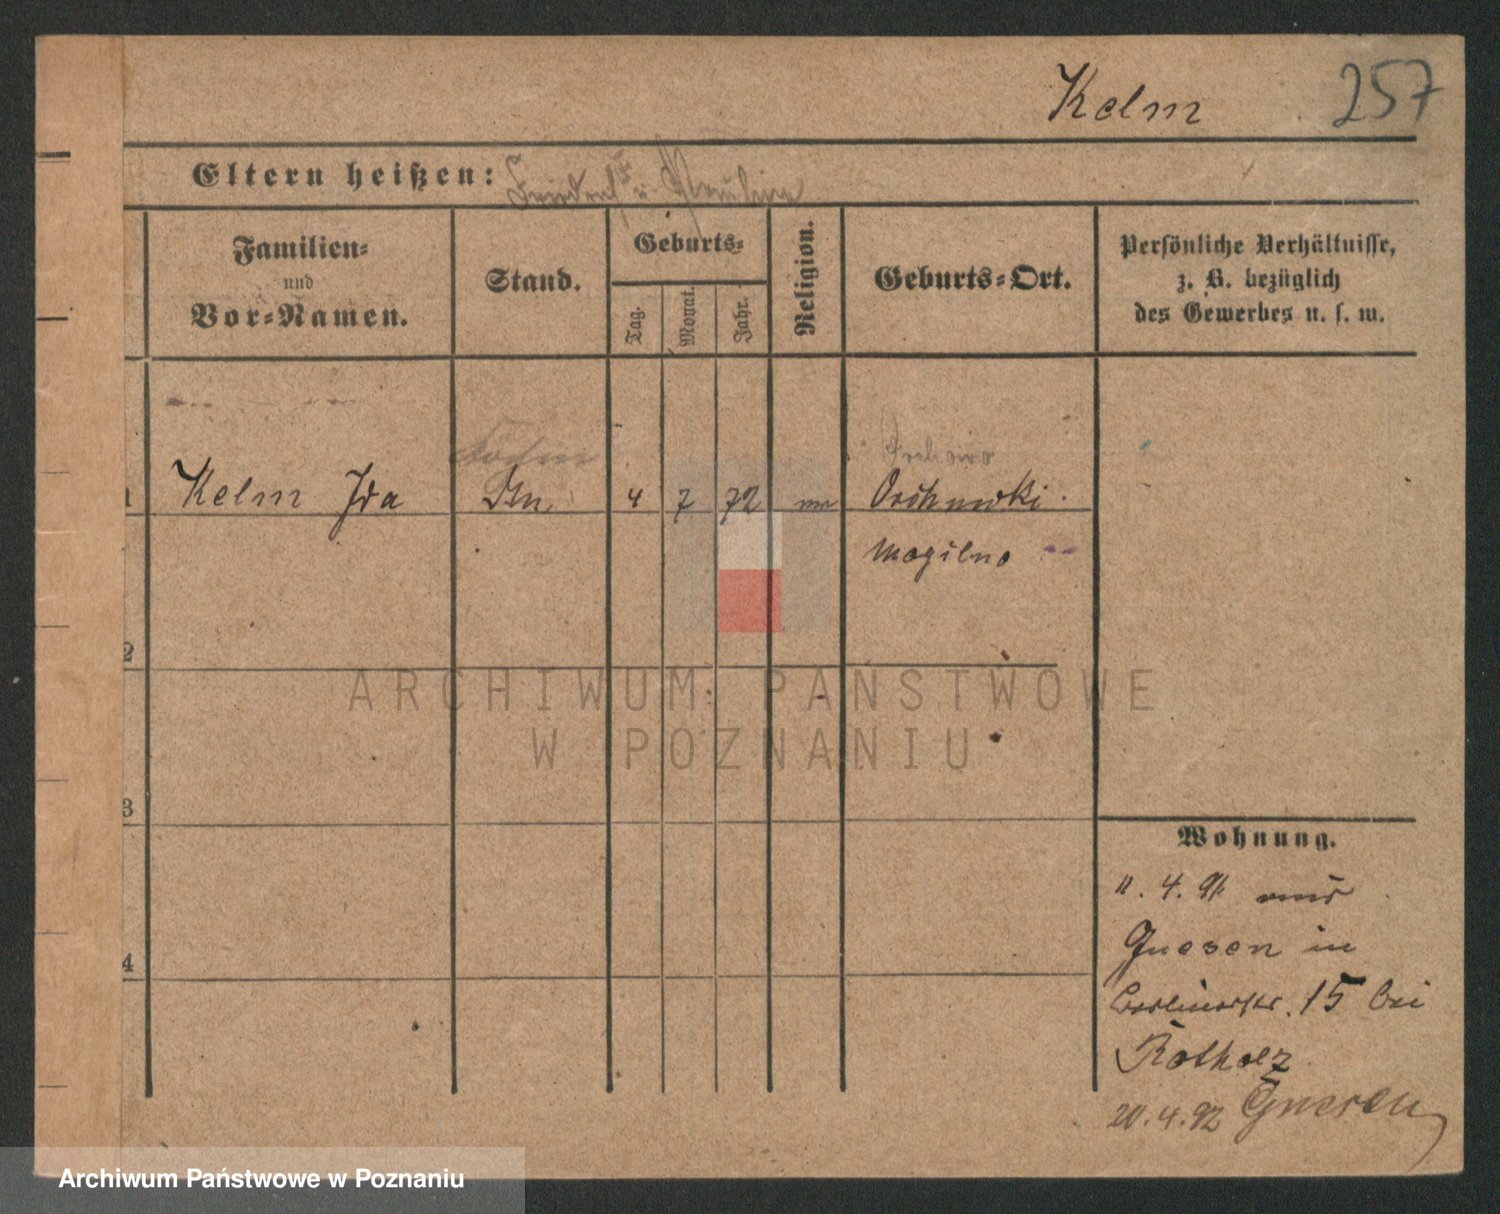 Kelm 257
Eltern heißen: Friedrich u. Paulina
Familien-
und
Vor-Namen.
Stand.
Geburts-
Tag.
Monat.
Jahr.
Religion.
Geburts-Ort.
Persönliche Verhältnisse,
z. B. bezüglich
des Gewerbes u. s. w.
Köchin
Orchowo
1 Kelm Ida 4 7 72
Mogilno
2
3
4
Wohnung.
11. 4. 91 aus
Gnesen in
Berlinerstr. 15 bei
Rotholz
20. 4. 92 Gnesen
ARCHIWUM PAŃSTWOWE
W POZNANIU
Archiwum Państwowe w Poznaniu